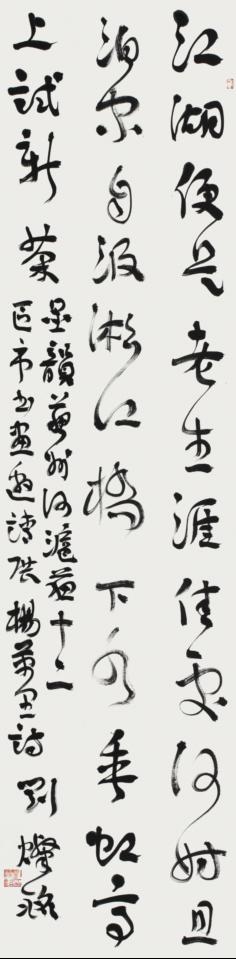 江湖便是老生涯佳處何妨且
泊家自汲淞江橋下水垂虹亭
上試新茶
墨韻蘇州河滬蘇十二
區市書畫邀請展楊萬里詩劉燦銘